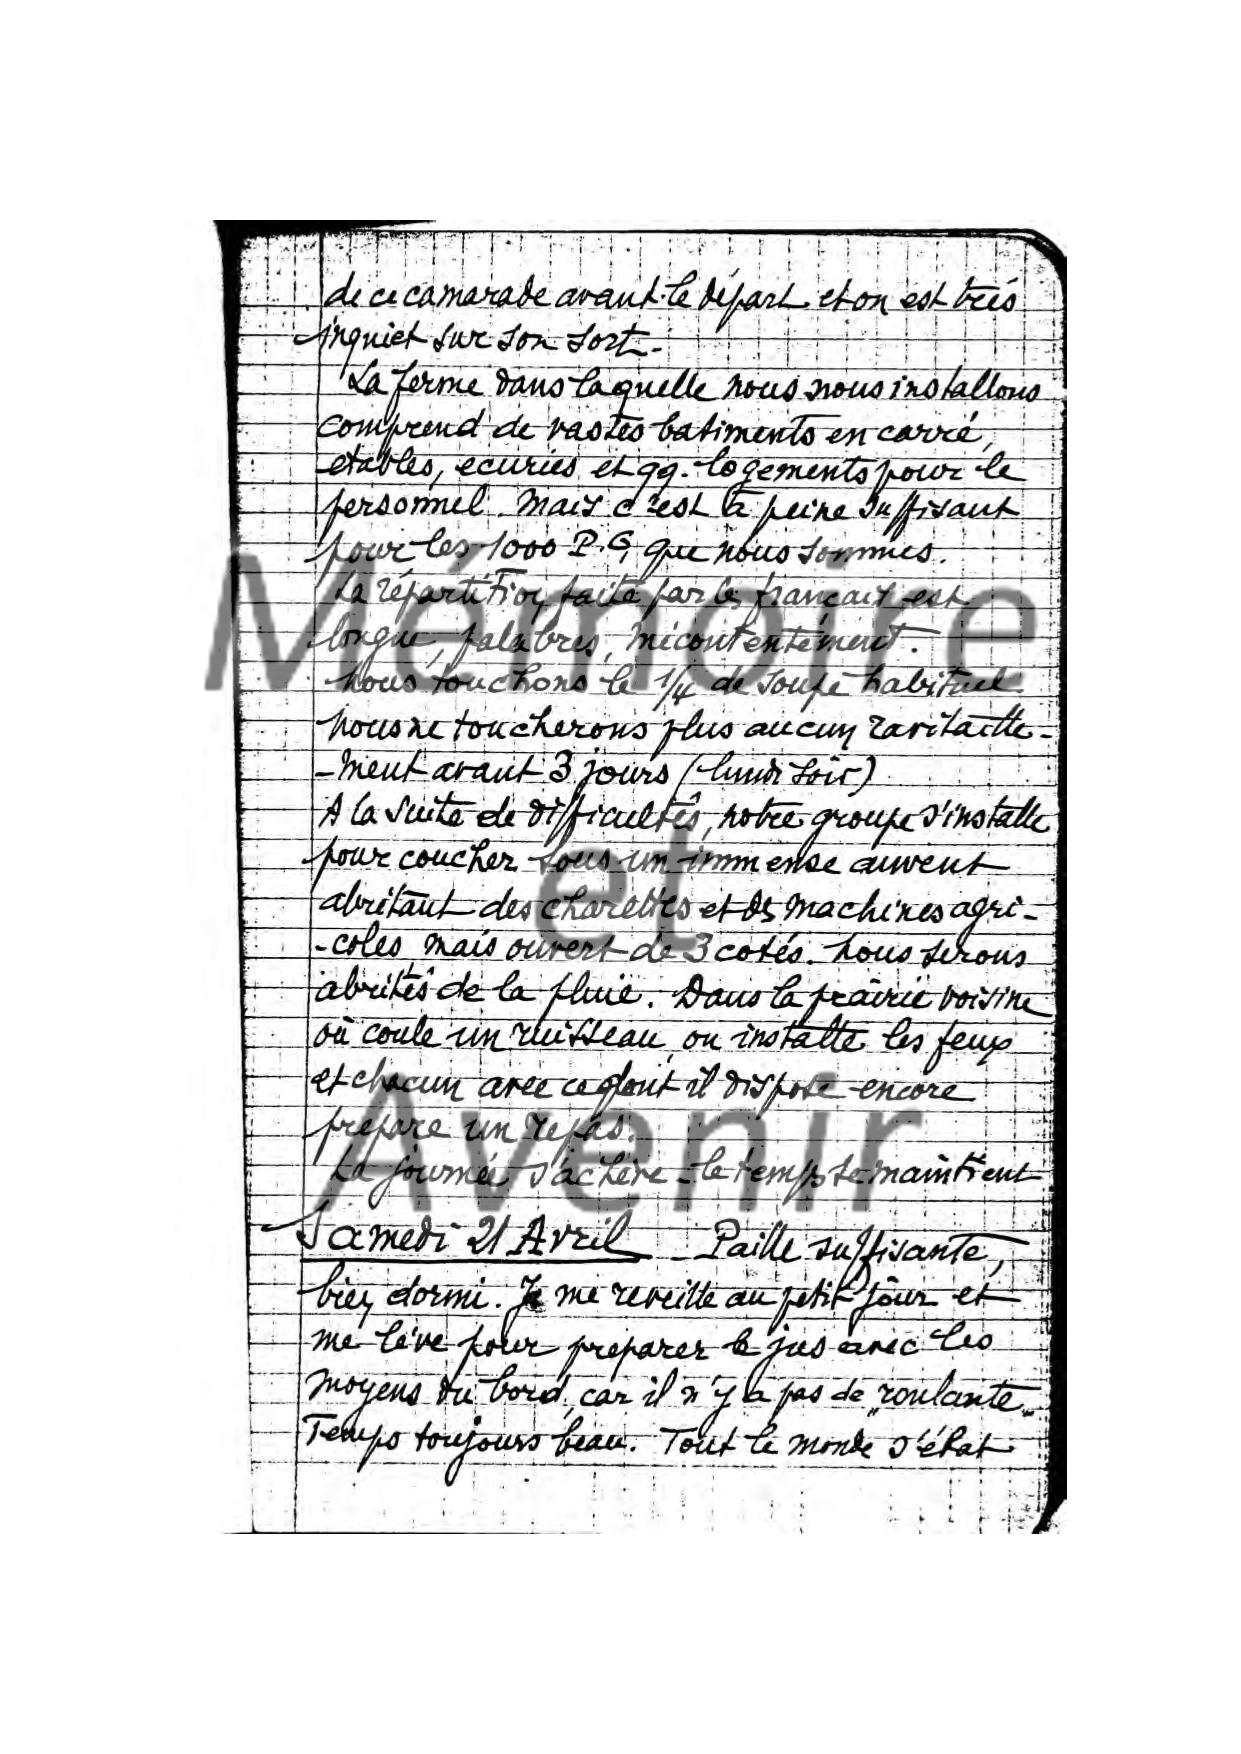 de ce camarade avant le départ et on est très
inquiet sur son sort.
La ferme dans laquelle nous nous installons
comprend de vastes batiments en carré,
etables, ecuries et qq. logements pour le
personnel. Mais c'est à peine suffisant
pour les 1000 P.G, que nous sommes.
La répartition faite par les français est
longue, palabres, mécontentement.
Nous touchons le 1/4 de soupe habituel.
Nous ne toucherons plus aucun ravitaille-
-ment avant 3 jours (lundi soir)
A la suite de difficultés, notre groupe s'installe
pour coucher sous un immense auvent
abritant des charettes et des machines agri-
-coles mais ouvert de 3 cotés. Nous serons
abrités de la pluie. Dans la prairie voisine
où coule un ruisseau, on installe les feux
et chacun avec ce dont il dispose encore
prepare un repas.
La journée s'achève - le temps se maintient
Samedi 21 Avril - Paille suffisante,
bien dormi. Je me reveille au petit jour et
me lève pour preparer le jus avec les
moyens du bord, car il n'y a pas de "roulante"
Temps toujours beau. Tout le monde s'ébat
Mémoire
et
Avenir